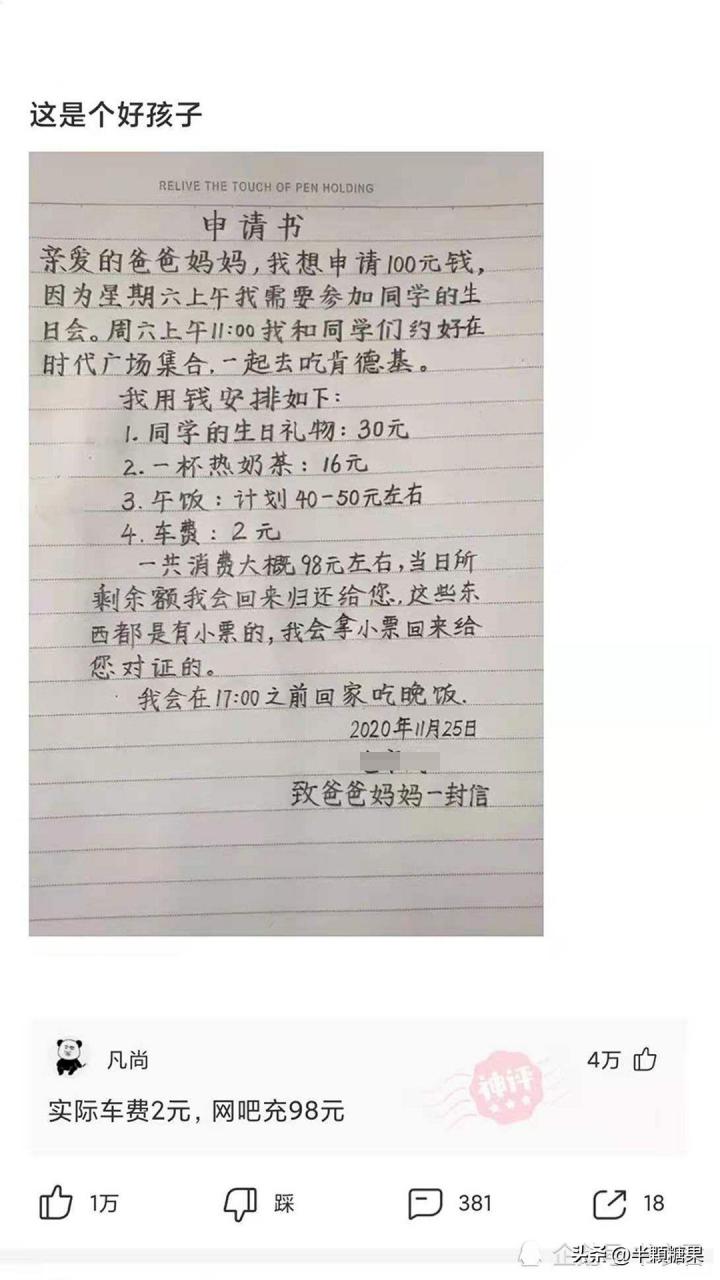 这是个好孩子
RELIVE THE TOUCH OF PEN HOLDING
申请书
亲爱的爸爸妈妈,我想申请100元钱,
因为星期六上午我需要参加同学的生
日会。周六上午11:00我和同学们约好在
时代广场集合,一起去吃肯德基。
我用钱安排如下:
1.同学的生日礼物:30元
2.一杯热奶茶:16元
3.午饭:计划40-50元左右
4.车费:2元
一共消费大概98元左右,当日所
剩余额我会回来归还给您,这些东
西都是有小票的,我会拿小票回来给
您对证的。
我会在17:00之前回家吃晚饭.
2020年11月25日
致爸爸妈妈一封信
凡尚
4万
神评
实际车费2元,网吧充98元
1万
踩
381
18
头条@半顆糖果